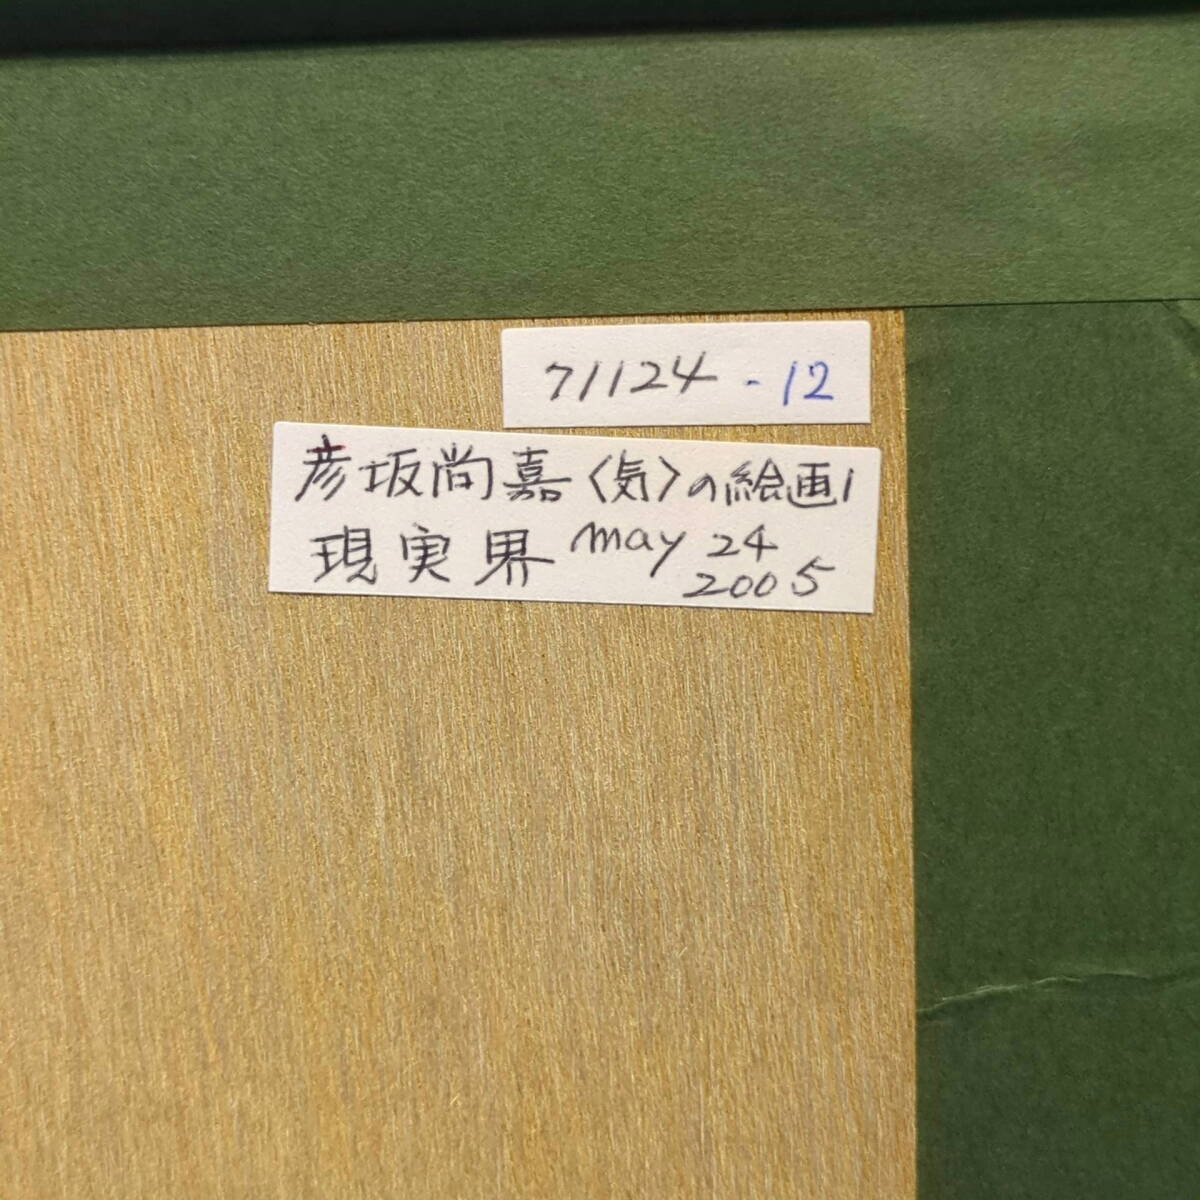 71124 - 12
彦坂尚嘉〈気〉の絵画1
現実界 may 24
2005